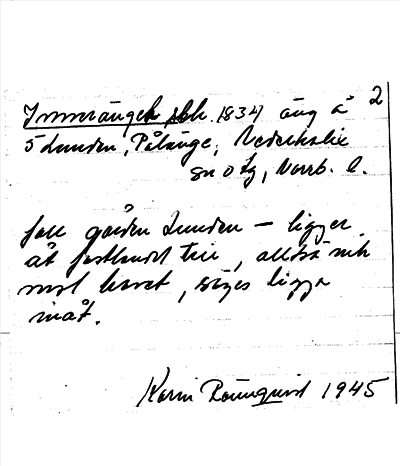 2
Immerängeh sbh. 1834 äng å
5 Lunden, Pålänge, Nederkalix
sn o tg, Norrb. l.
fall gården Lunden – ligger
åt fastlandet till, alltså
mot havet, säges ligga
inåt.
Karin Rönnquist 1945